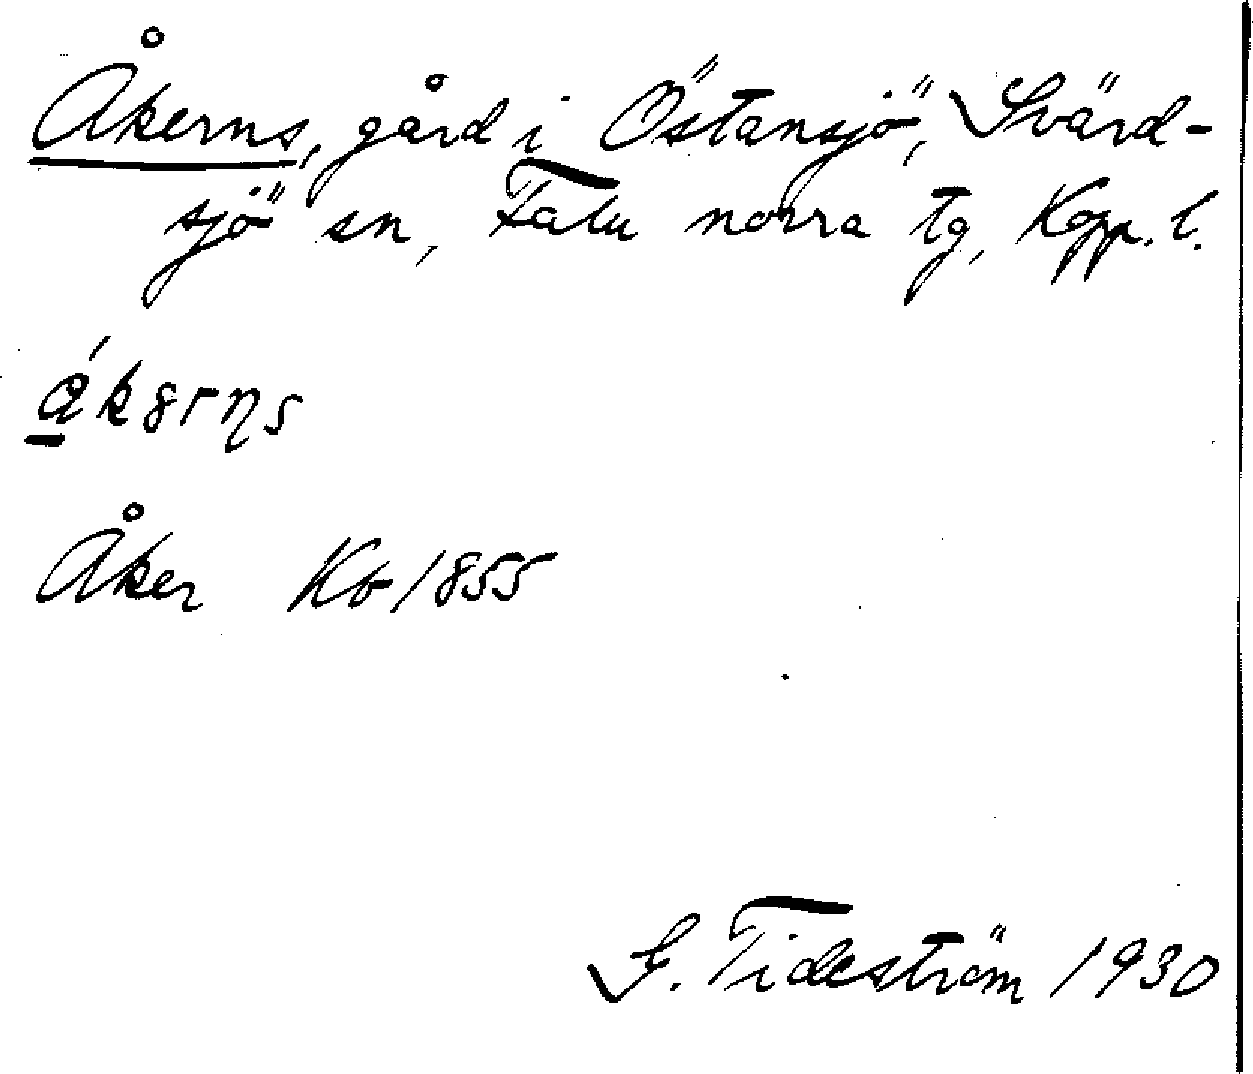 Åkerns, gård i Östansjö, Svärd-
sjö sn, Falu norra tg, Kopp. l.
Åker Kb 1855
G. Tideström 1930